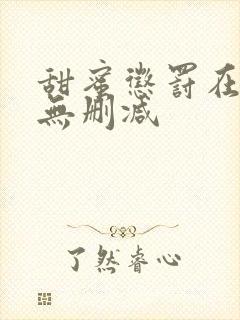 甜蜜懲罰在
無刪减
了然睿心